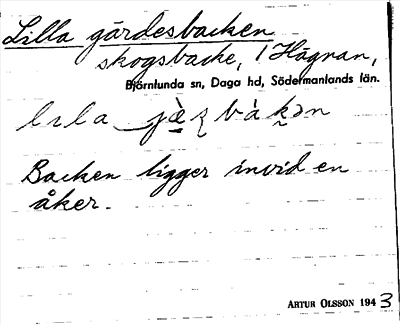 Lilla gärdesbacken
skogsbacke, 1 Hägnan,
Björnlunda sn, Daga hd, Södermanlands län.
lɩla
Backen ligger invid en
åker.
ARTUR OLSSON 1943